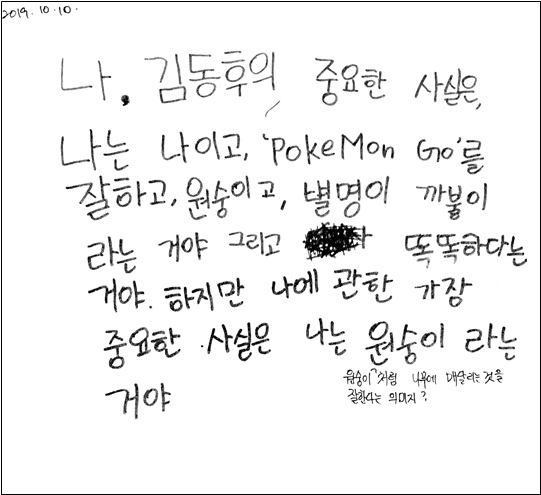 2019. 10. 10.
나. 김동후의 중요한 사실은,
나는 나이고, 'PokeMon Go'를
잘하고, 원숭이고, 별명이 까불이
라는 거야 그리고 똑똑하다는
거야. 하지만 나에 관한 가장
중요한 사실은 나는 원숭이 라는
거야
원숭이처럼 나무에 매달리는 것을
잘한다는 의미지?